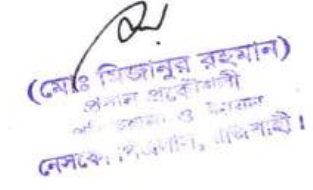 (মোঃ মিজানুর রহমান)
প্রধান প্রকৌশলী
ও
নেসকো, পিএলসি, রাজশাহী।